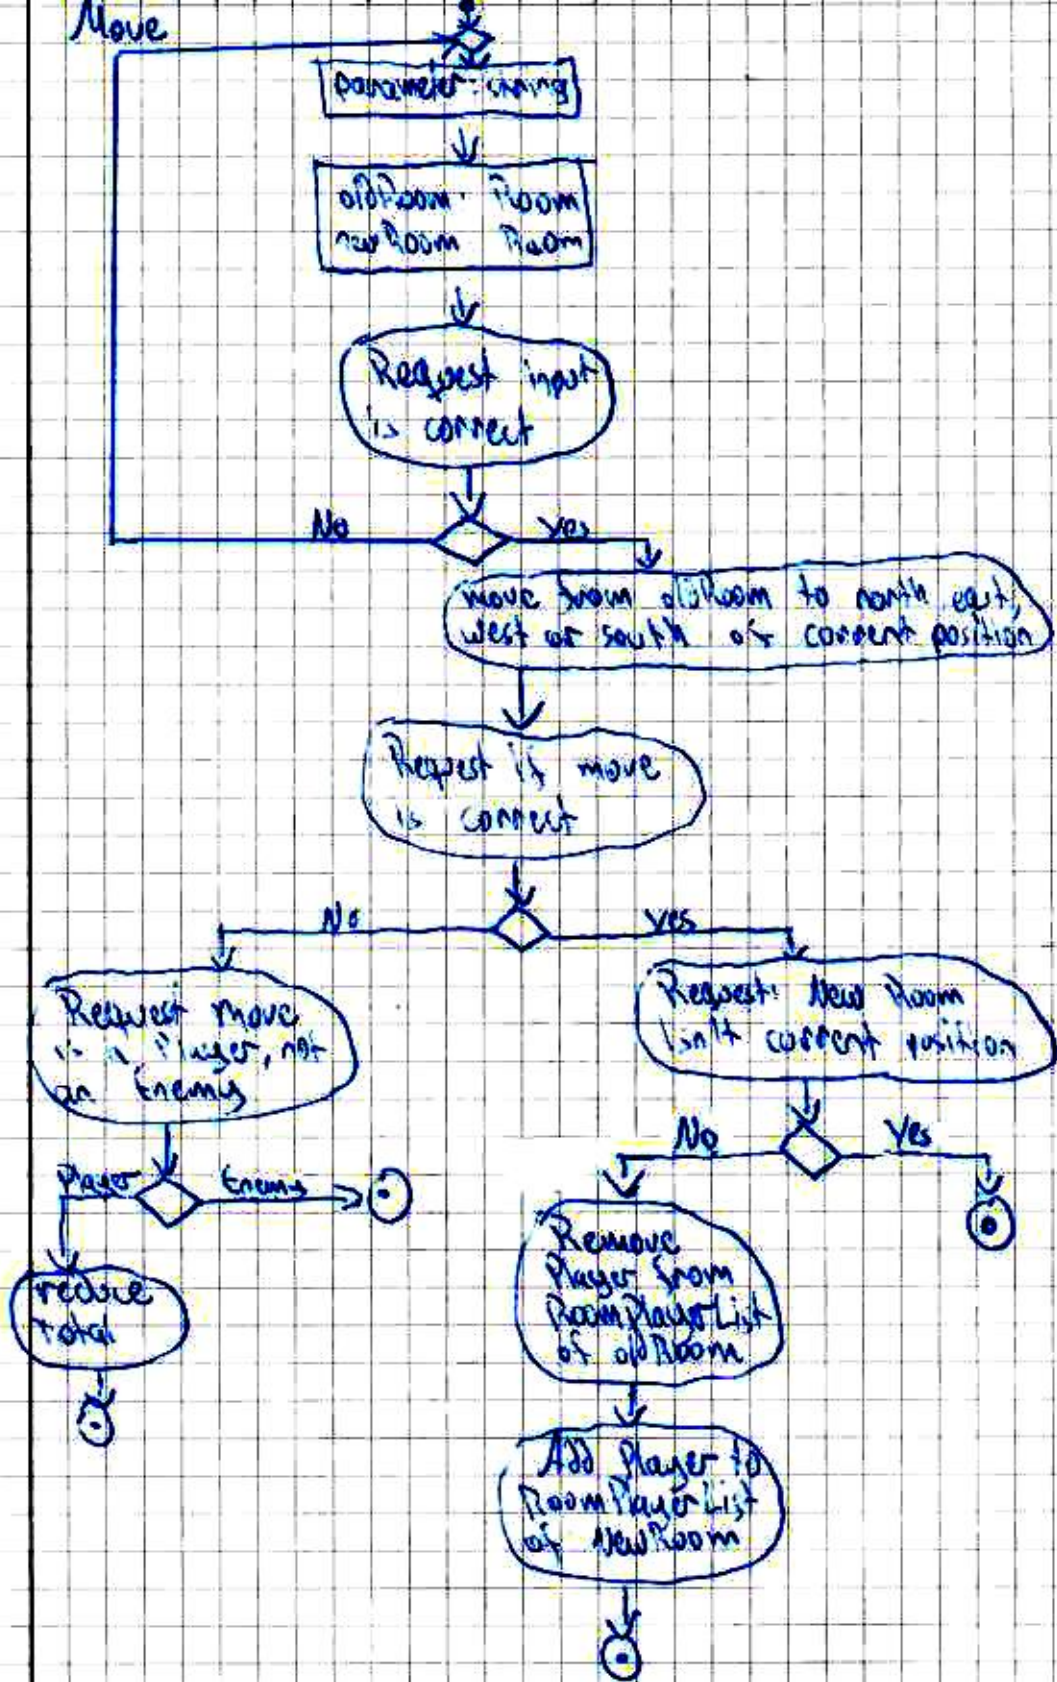 Move
parameter: string
oldRoom: Room
newRoom: Room
Request input
is correct
No
Yes
move from oldRoom to north east,
west or south of current position
Request if move
is correct
No
yes
Request move
is a Player, not
an Enemy
Request: New Room
isn't current position
No
Yes
Player
Enemy
Remove
Player from
RoomPlayerList
of oldRoom
reduce
total
Add Player to
RoomPlayerList
of NewRoom